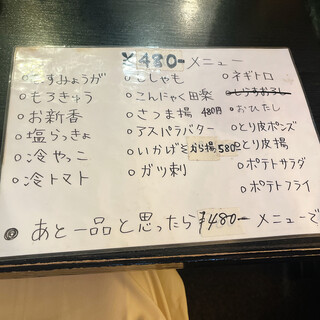 ¥480-メニュー
○こすみょうが
○もろきゅう
○お新香
○塩らっきょ
○冷やっこ
○冷トマト
○ししゃも
○こんにゃく田楽
○さつま揚 480円
○アスパラバター
○いかげそから揚 580円
○ガツ刺
○ネギトロ
○しらすおろし
○おひたし
○とり皮ポンズ
○とり皮揚
○ポテトサラダ
○ポテトフライ
◎あと一品と思ったら¥480-メニューで